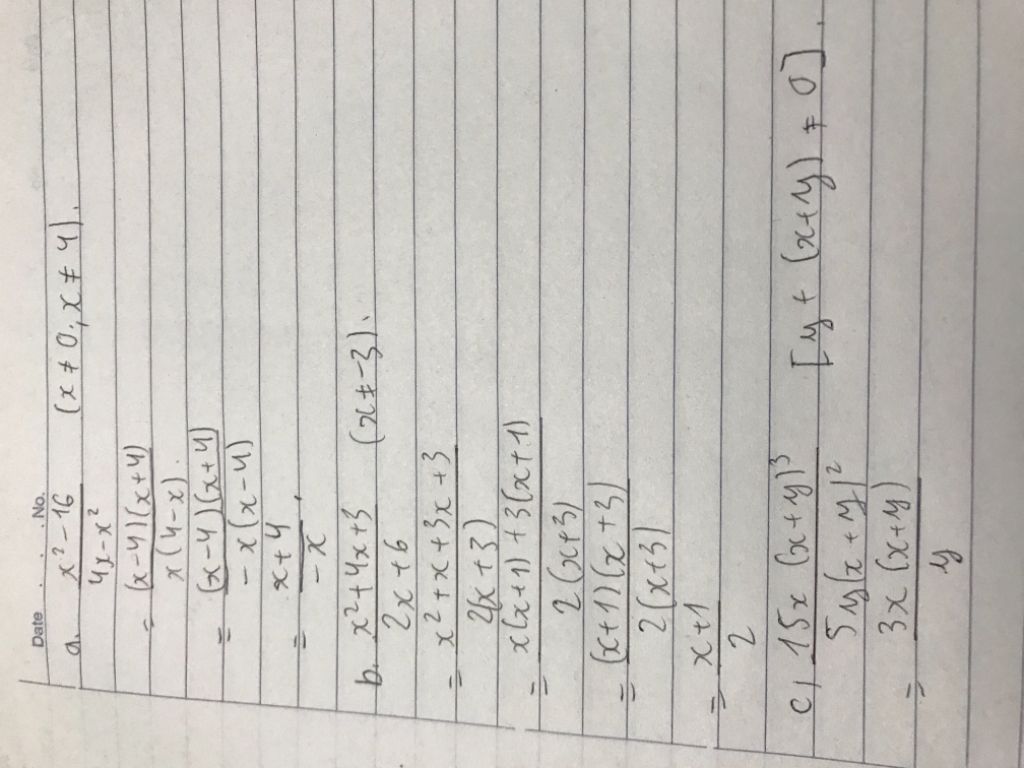 Date . . No.
a. x² - 16 / 4x - x² (x ≠ 0, x ≠ 4).
= (x-4)(x+4) / x(4-x).
= (x-4)(x+4) / -x(x-4)
= x+4 / -x.
b. x² + 4x + 3 / 2x + 6 (x ≠ -3).
= x² + x + 3x + 3 / 2(x + 3)
= x(x+1) + 3(x+1) / 2(x+3)
= (x+1)(x+3) / 2(x+3)
= x+1 / 2
c, 15x (x+y)³ / 5y(x+y)² [y + (x+y) ≠ 0].
= 3x (x+y) / y